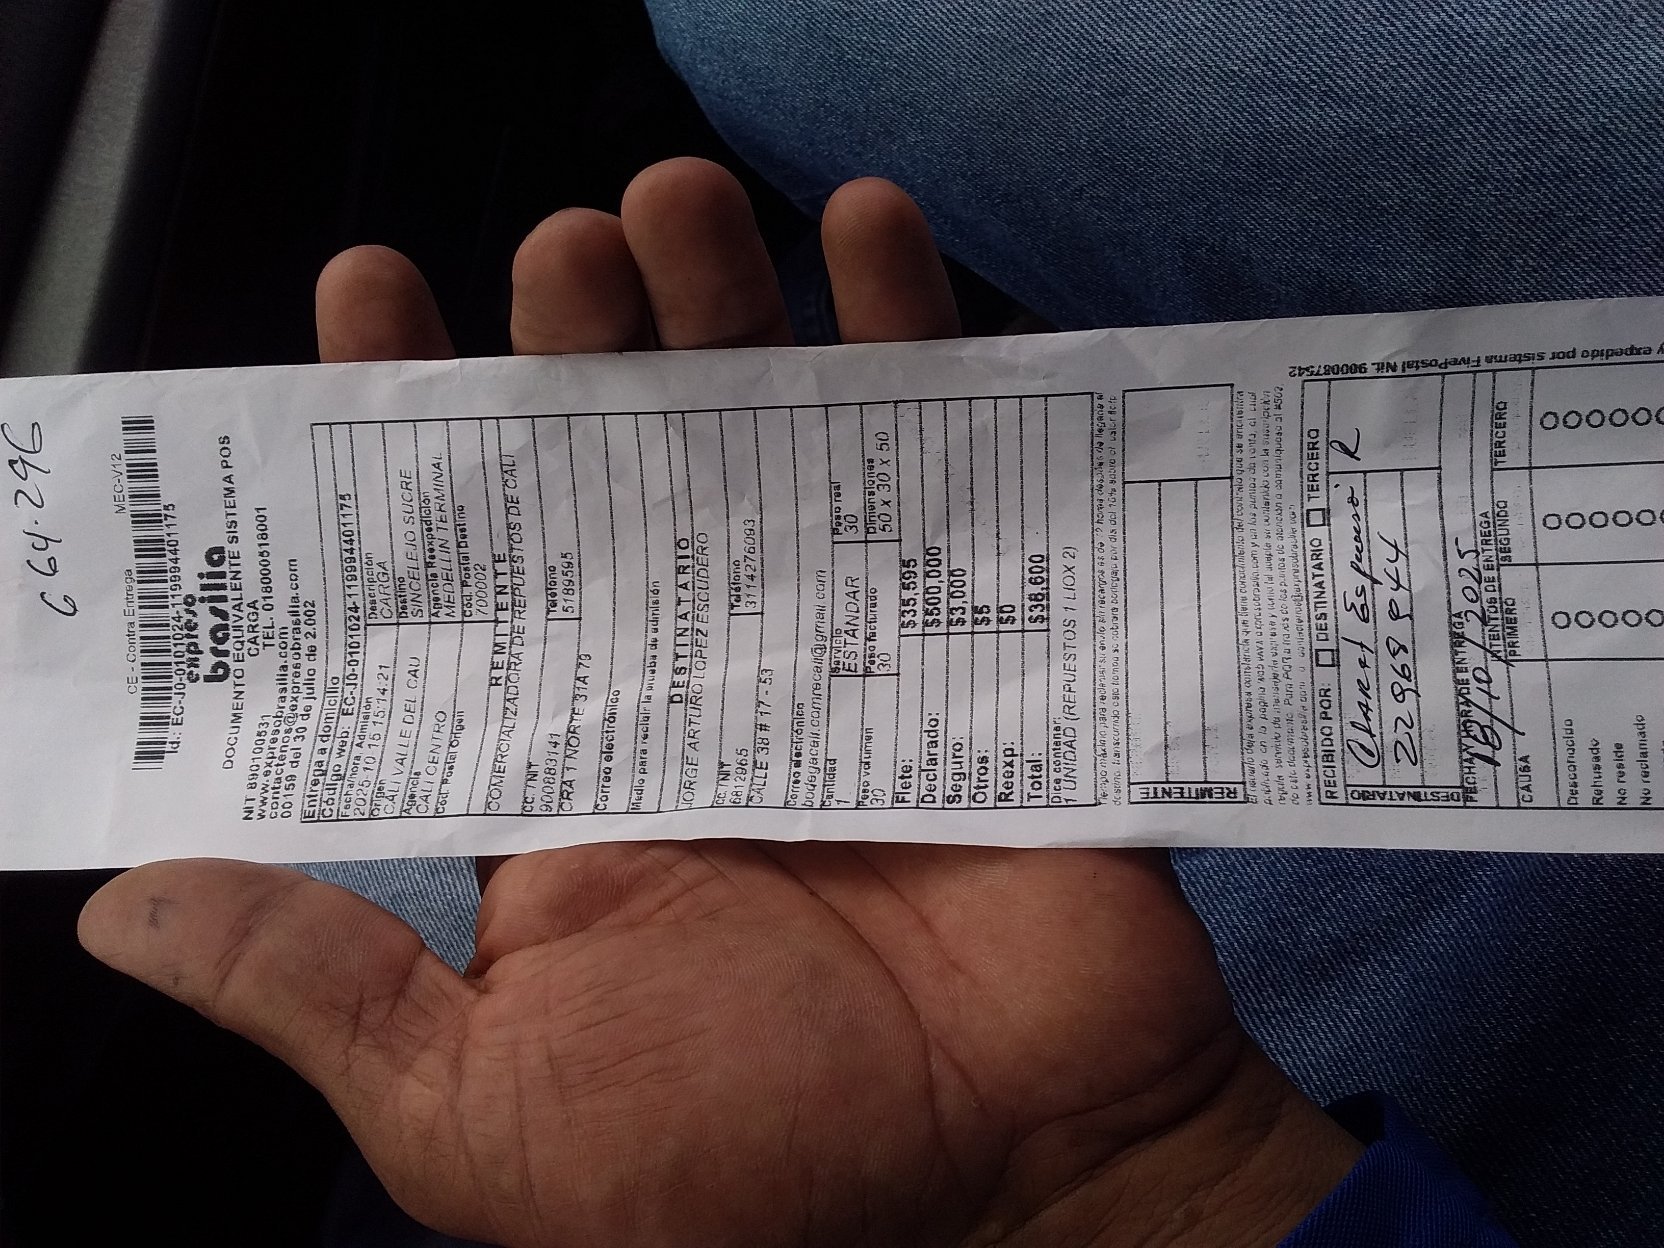 G 64.296
CE - Contra Entrega MEC-V12
Id.: EC-J0-0101024-119994401175
expreso
brasilia
DOCUMENTO EQUIVALENTE SISTEMA POS
CARGA
NIT 890100531 TEL. 018000518001
www.expresobrasilia.com
contactenos@expresobrasilia.com
00159 del 30 de julio de 2.002
Entrega a domicilio
Código web: EC-J0-0101024-119994401175
Fecha/hora Admisión Descripción
2025-10-15 15:14:21 CARGA
Origen Destino
CALI VALLE DEL CAU SINCELEJO SUCRE
Agencia Agencia Reexpedición
CALI CENTRO MEDELLIN TERMINAL
Cod. Postal Origen Cod. Postal Destino
700002
REMITENTE
COMERCIALIZADORA DE REPUESTOS DE CALI
CC / NIT Teléfono
9009283141 5189595
CRA 1 NORTE 31A 79
Correo electrónico
Medio para recibir la prueba de admisión
DESTINATARIO
JORGE ARTURO LOPEZ ESCUDERO
CC / NIT Teléfono
6812965 3114276093
CALLE 38 # 17 - 53
Correo electrónico
bodegacali.comrecali@gmail.com
Cantidad Servicio Peso real
1 ESTANDAR 30
Peso volumen Peso facturado Dimensiones
30 30 50 x 30 x 50
Flete: $35,595
Declarado: $500,000
Seguro: $3,000
Otros: $5
Reexp: $0
Total: $38,600
Dice contener:
1 UNIDAD (REPUESTOS 1 LIOX 2)
REMITENTE
y expedido por sistema FivePostal Nit. 900087542
RECIBIDO POR: DESTINATARIO TERCERO
R
22968944
DESTINATARIO
FECHA Y HORA DE ENTREGA
18/10/2025
INTENTOS DE ENTREGA
CAUSA PRIMERO SEGUNDO TERCERO
Desconocido
Rehusado
No reside
No reclamado